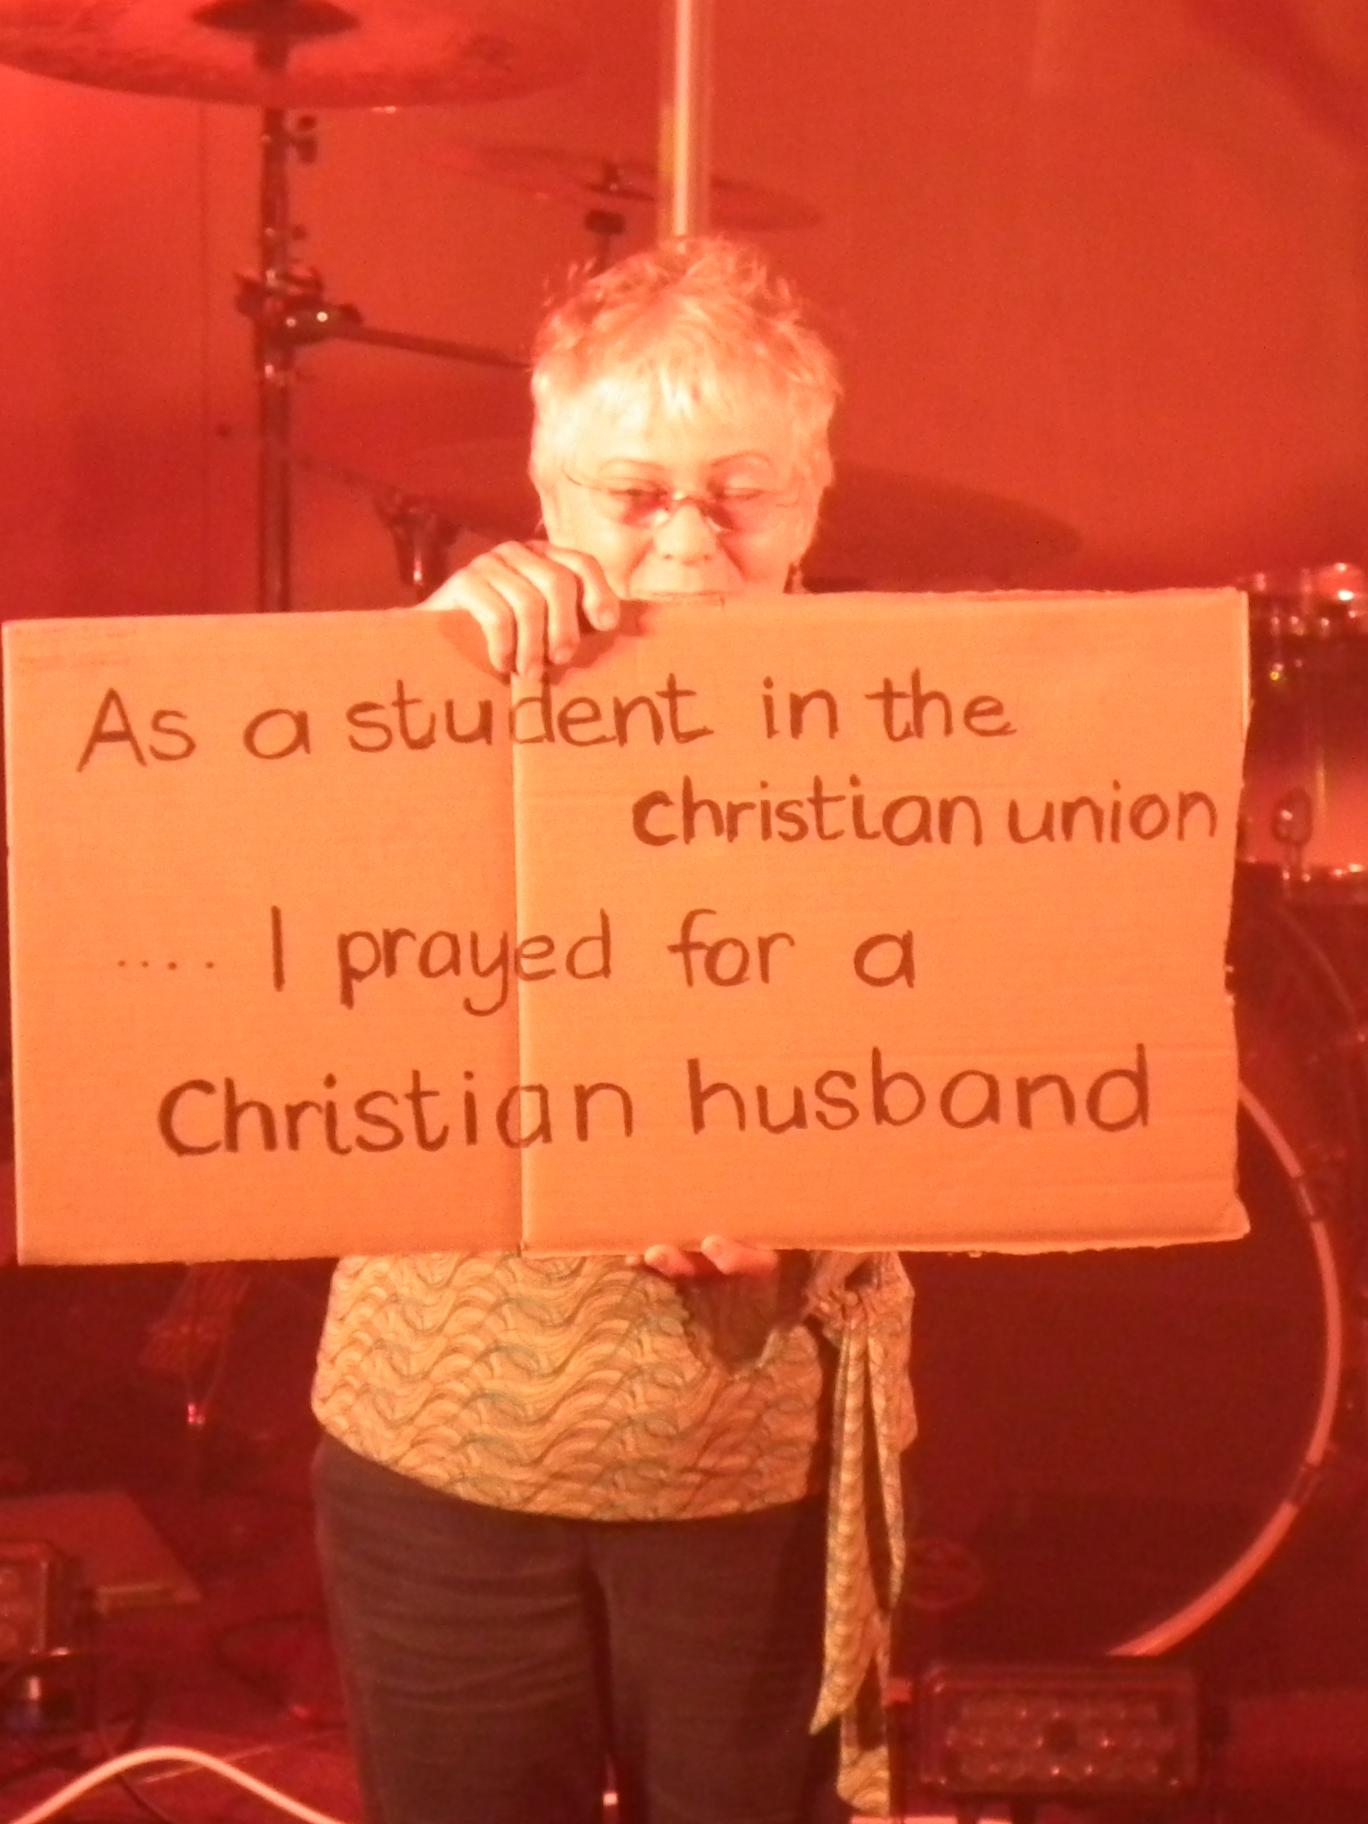 As a student in the
christian union
.... I prayed for a
Christian husband